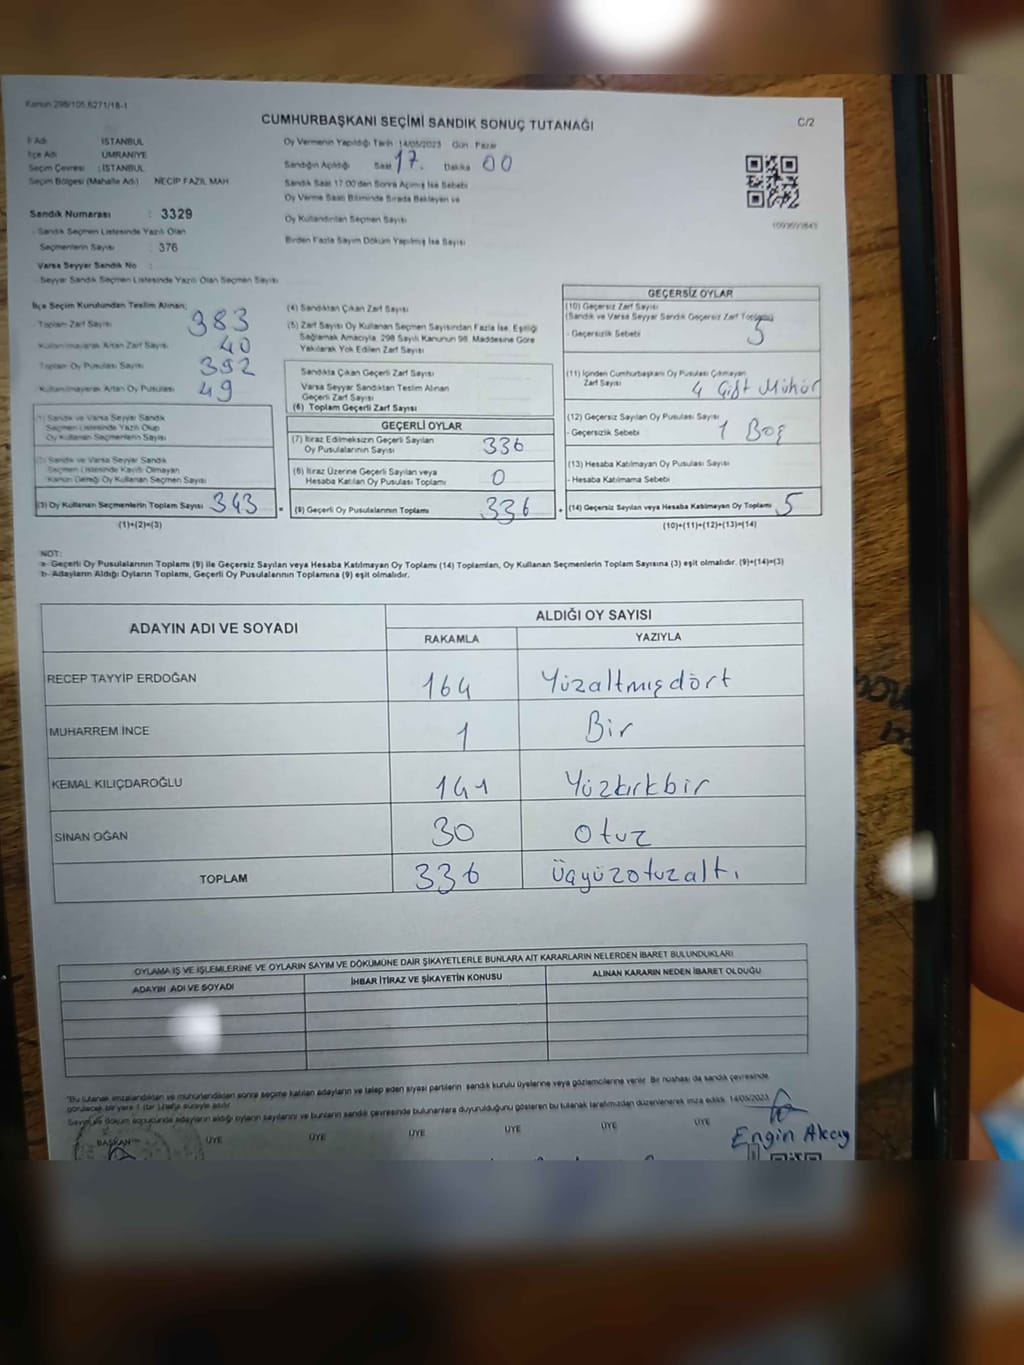 Kanun 298/105,6271/18-1
CUMHURBAŞKANI SEÇİMİ SANDIK SONUÇ TUTANAĞI
C/2
İl Adı : İSTANBUL
İlçe Adı : ÜMRANİYE
Seçim Çevresi : İSTANBUL
Seçim Bölgesi (Mahalle Adı) NECİP FAZIL MAH.
Sandık Numarası : 3329
- Sandık Seçmen Listesinde Yazılı Olan
Seçmenlerin Sayısı : 376
Varsa Seyyar Sandık No :
- Seyyar Sandık Seçmen Listesinde Yazılı Olan Seçmen Sayısı
Oy Vermenin Yapıldığı Tarih :14/05/2023 Gün : Pazar
Sandığın Açıldığı Saat 17. Dakika 00
Sandık Saat 17:00'den Sonra Açılmış İse Sebebi
Oy Verme Saati Bitiminde Sırada Bekleyen ve
Oy Kullandırılan Seçmen Sayısı
Birden Fazla Sayım Döküm Yapılmış İse Sayısı
İlçe Seçim Kurulundan Teslim Alınan;
- Toplam Zarf Sayısı 383
- Kullanılmayarak Artan Zarf Sayısı 40
- Toplam Oy Pusulası Sayısı 392
- Kullanılmayarak Artan Oy Pusulası 49
(1) Sandık ve Varsa Seyyar Sandık
Seçmen Listesinde Yazılı Olup
Oy Kullanan Seçmenlerin Sayısı
(2) Sandık ve Varsa Seyyar Sandık
Seçmen Listesinde Kayıtlı Olmayan
Kanun Gereği Oy Kullanan Seçmen Sayısı
(3) Oy Kullanan Seçmenlerin Toplam Sayısı 343
(1)+(2)=(3)
(4) Sandıktan Çıkan Zarf Sayısı
(5) Zarf Sayısı Oy Kullanan Seçmen Sayısından Fazla İse, Eşitliği
Sağlamak Amacıyla, 298 Sayılı Kanunun 98. Maddesine Göre
Yakılarak Yok Edilen Zarf Sayısı
Sandıkta Çıkan Geçerli Zarf Sayısı
Varsa Seyyar Sandıktan Teslim Alınan
Geçerli Zarf Sayısı
(6) Toplam Geçerli Zarf Sayısı
GEÇERLİ OYLAR
(7) İtiraz Edilmeksizin Geçerli Sayılan
Oy Pusulalarının Sayısı 336
(8) İtiraz Üzerine Geçerli Sayılan veya
Hesaba Katılan Oy Pusulası Toplamı 0
= (9) Geçerli Oy Pusulalarının Toplamı 336
GEÇERSİZ OYLAR
(10) Geçersiz Zarf Sayısı
(Sandık ve Varsa Seyyar Sandık Geçersiz Zarf Toplamı)
- Geçersizlik Sebebi 5
(11) İçinden Cumhurbaşkanı Oy Pusulası Çıkmayan
Zarf Sayısı 4 Çift Mühür
(12) Geçersiz Sayılan Oy Pusulası Sayısı
- Geçersizlik Sebebi 1 Boş
(13) Hesaba Katılmayan Oy Pusulası Sayısı
- Hesaba Katılmama Sebebi
+ (14) Geçersiz Sayılan veya Hesaba Katılmayan Oy Toplamı 5
(10)+(11)+(12)+(13)=(14)
NOT:
a- Geçerli Oy Pusulalarının Toplamı (9) ile Geçersiz Sayılan veya Hesaba Katılmayan Oy Toplamı (14) Toplamları, Oy Kullanan Seçmenlerin Toplam Sayısına (3) eşit olmalıdır. (9)+(14)=(3)
b- Adayların Aldığı Oyların Toplamı, Geçerli Oy Pusulalarının Toplamına (9) eşit olmalıdır.
ADAYIN ADI VE SOYADI
ALDIĞI OY SAYISI
RAKAMLA YAZIYLA
RECEP TAYYİP ERDOĞAN 164 Yüzaltmışdört
MUHARREM İNCE 1 Bir
KEMAL KILIÇDAROĞLU 141 Yüzkırkbir
SİNAN OĞAN 30 Otuz
TOPLAM 336 Üçyüzotuzaltı
OYLAMA İŞ VE İŞLEMLERİNE VE OYLARIN SAYIM VE DÖKÜMÜNE DAİR ŞİKAYETLERLE BUNLARA AİT KARARLARIN NELERDEN İBARET BULUNDUKLARI
ADAYIN ADI VE SOYADI İHBAR İTİRAZ VE ŞİKAYETİN KONUSU ALINAN KARARIN NEDEN İBARET OLDUĞU
"Bu tutanak imzalandıktan ve mühürlendikten sonra seçime katılan adayların ve talep eden siyasi partilerin sandık kurulu üyelerine veya gözlemcilerine verilir. Bir nüshası da sandık çevresinde
görülecek bir yere 1 (bir) hafta süreyle asılır.
Sayım ve döküm sonucunda adayların aldığı oyların sayılarını ve bunların sandık çevresinde bulunanlara duyurulduğunu gösteren bu tutanak tarafımızdan düzenlenerek imza edildi. 14/05/2023
BAŞKAN ÜYE ÜYE ÜYE ÜYE ÜYE ÜYE
Engin Akçay